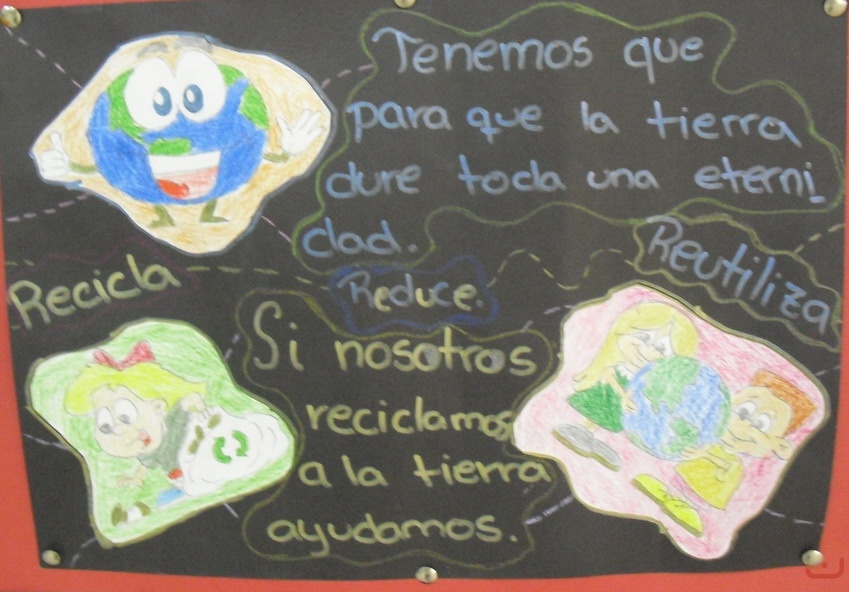 Tenemos que
para que la tierra
dure toda una eterni
dad.
Recicla
Reduce.
Reutiliza
Si nosotros
reciclamos
a la tierra
ayudamos.